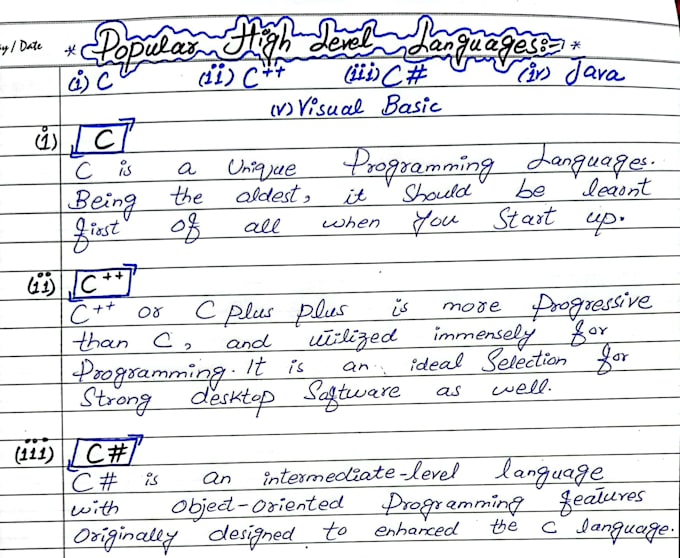 ay / Date
* Popular High Level Languages:- *
(i) C (ii) C++ (iii) C# (iv) Java
(v) Visual Basic
(i) C
C is a Unique Programming Languages.
Being the oldest, it should be learnt
first of all when you start up.
(ii) C++
C++ or C plus plus is more Progressive
than C, and utilized immensely for
Programming. It is an ideal Selection for
Strong desktop Software as well.
(iii) C#
C# is an intermediate-level language
with Object-oriented Programming features
Originally designed to enhanced the C language.